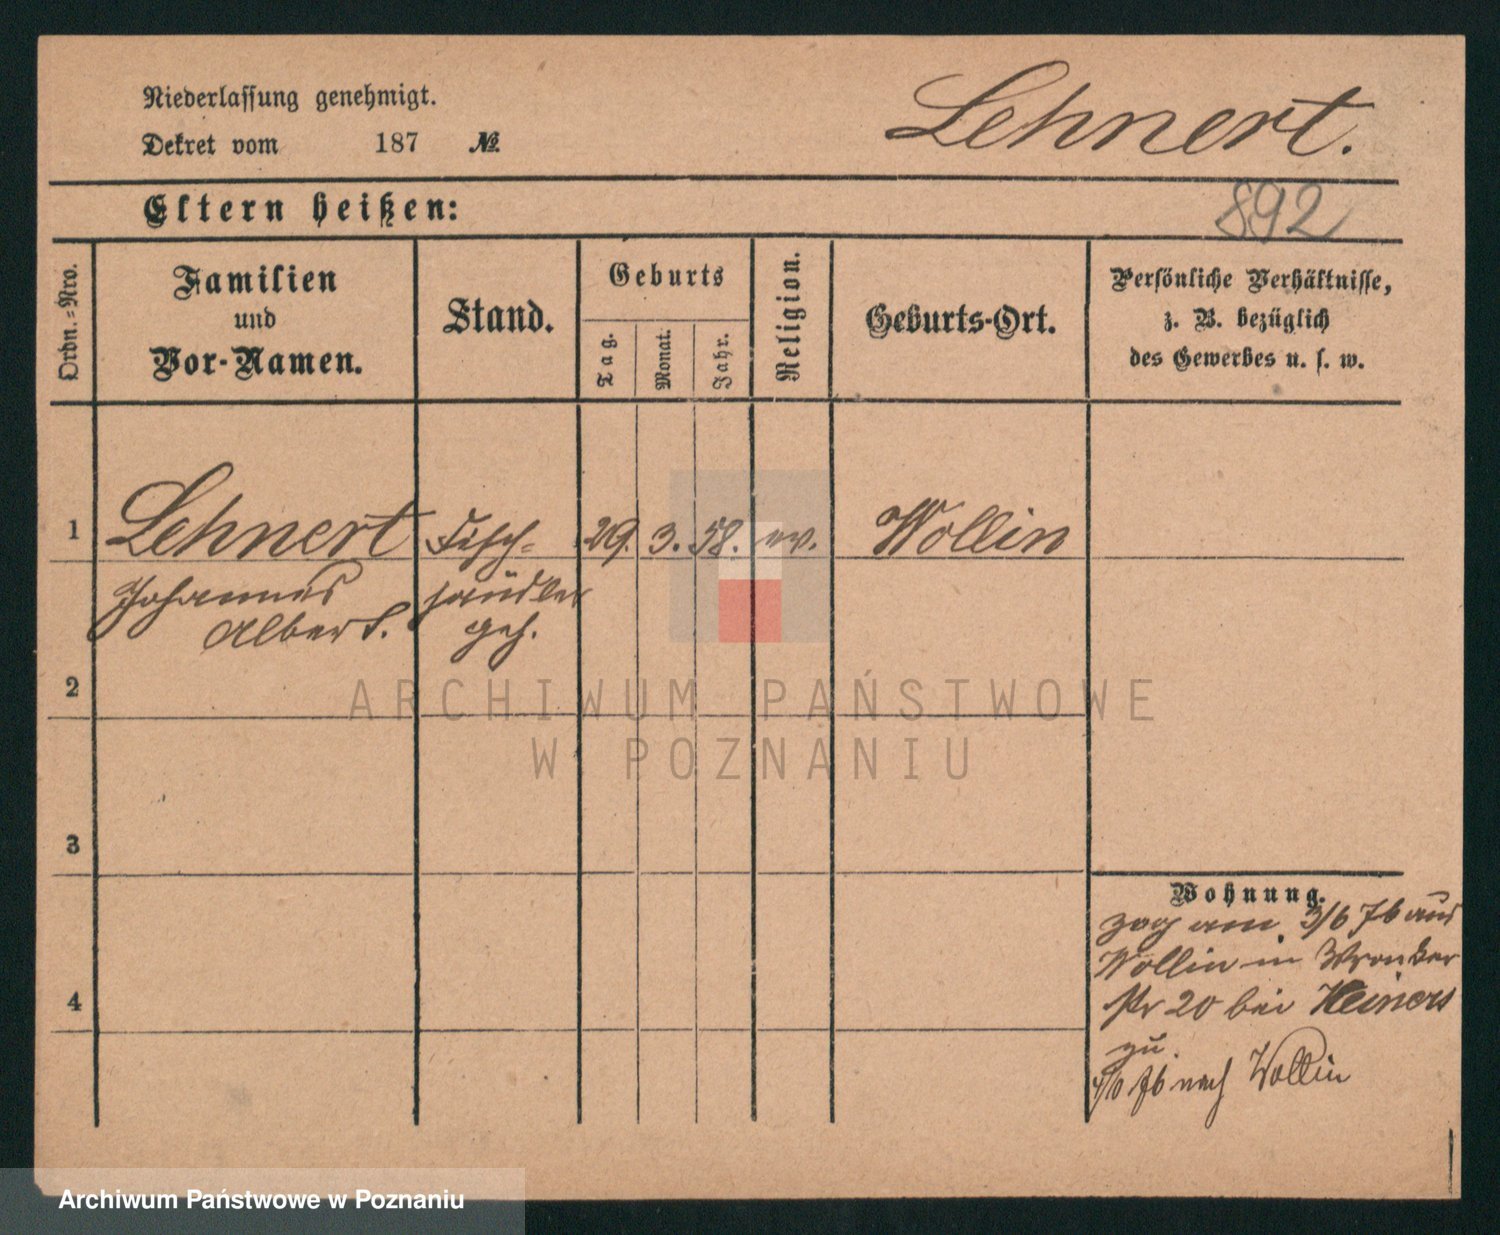 Niederlassung genehmigt.
Lehnert.
Dekret vom 187 №
Eltern heißen:
892
Ordn.-Nro.
Familien
und
Vor-Namen.
Stand.
Geburts
Tag.
Monat.
Jahr.
Religion.
Geburts-Ort.
Persönliche Verhältnisse,
z. B. bezüglich
des Gewerbes u. s. w.
1 Lehnert Fisch- 29. 3. 58. ev. Wollin
Johannes händler
Albert. geh.
2
ARCHIWUM PAŃSTWOWE
W POZNANIU
3
Wohnung.
zog am 3/6 76 aus
Wollin in Wronker
4
str 20 bei Heiners
zu.
76 nach Wollin
Archiwum Państwowe w Poznaniu